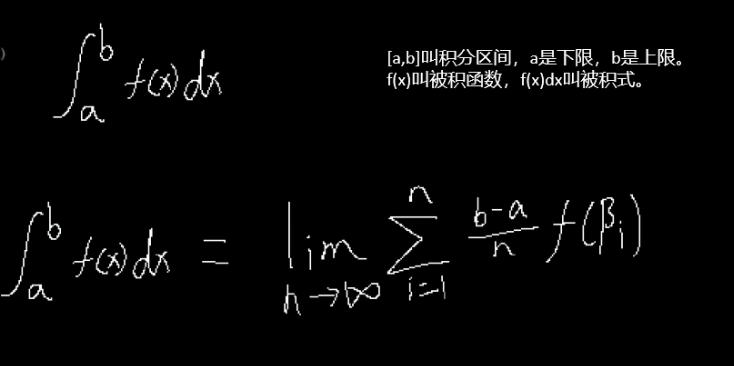 )
∫_a^b f(x) dx
[a,b]叫积分区间，a是下限，b是上限。
f(x)叫被积函数，f(x)dx叫被积式。
∫_a^b f(x) dx = lim_{n→∞} ∑_{i=1}^{n} \frac{b-a}{n} f(β_i)